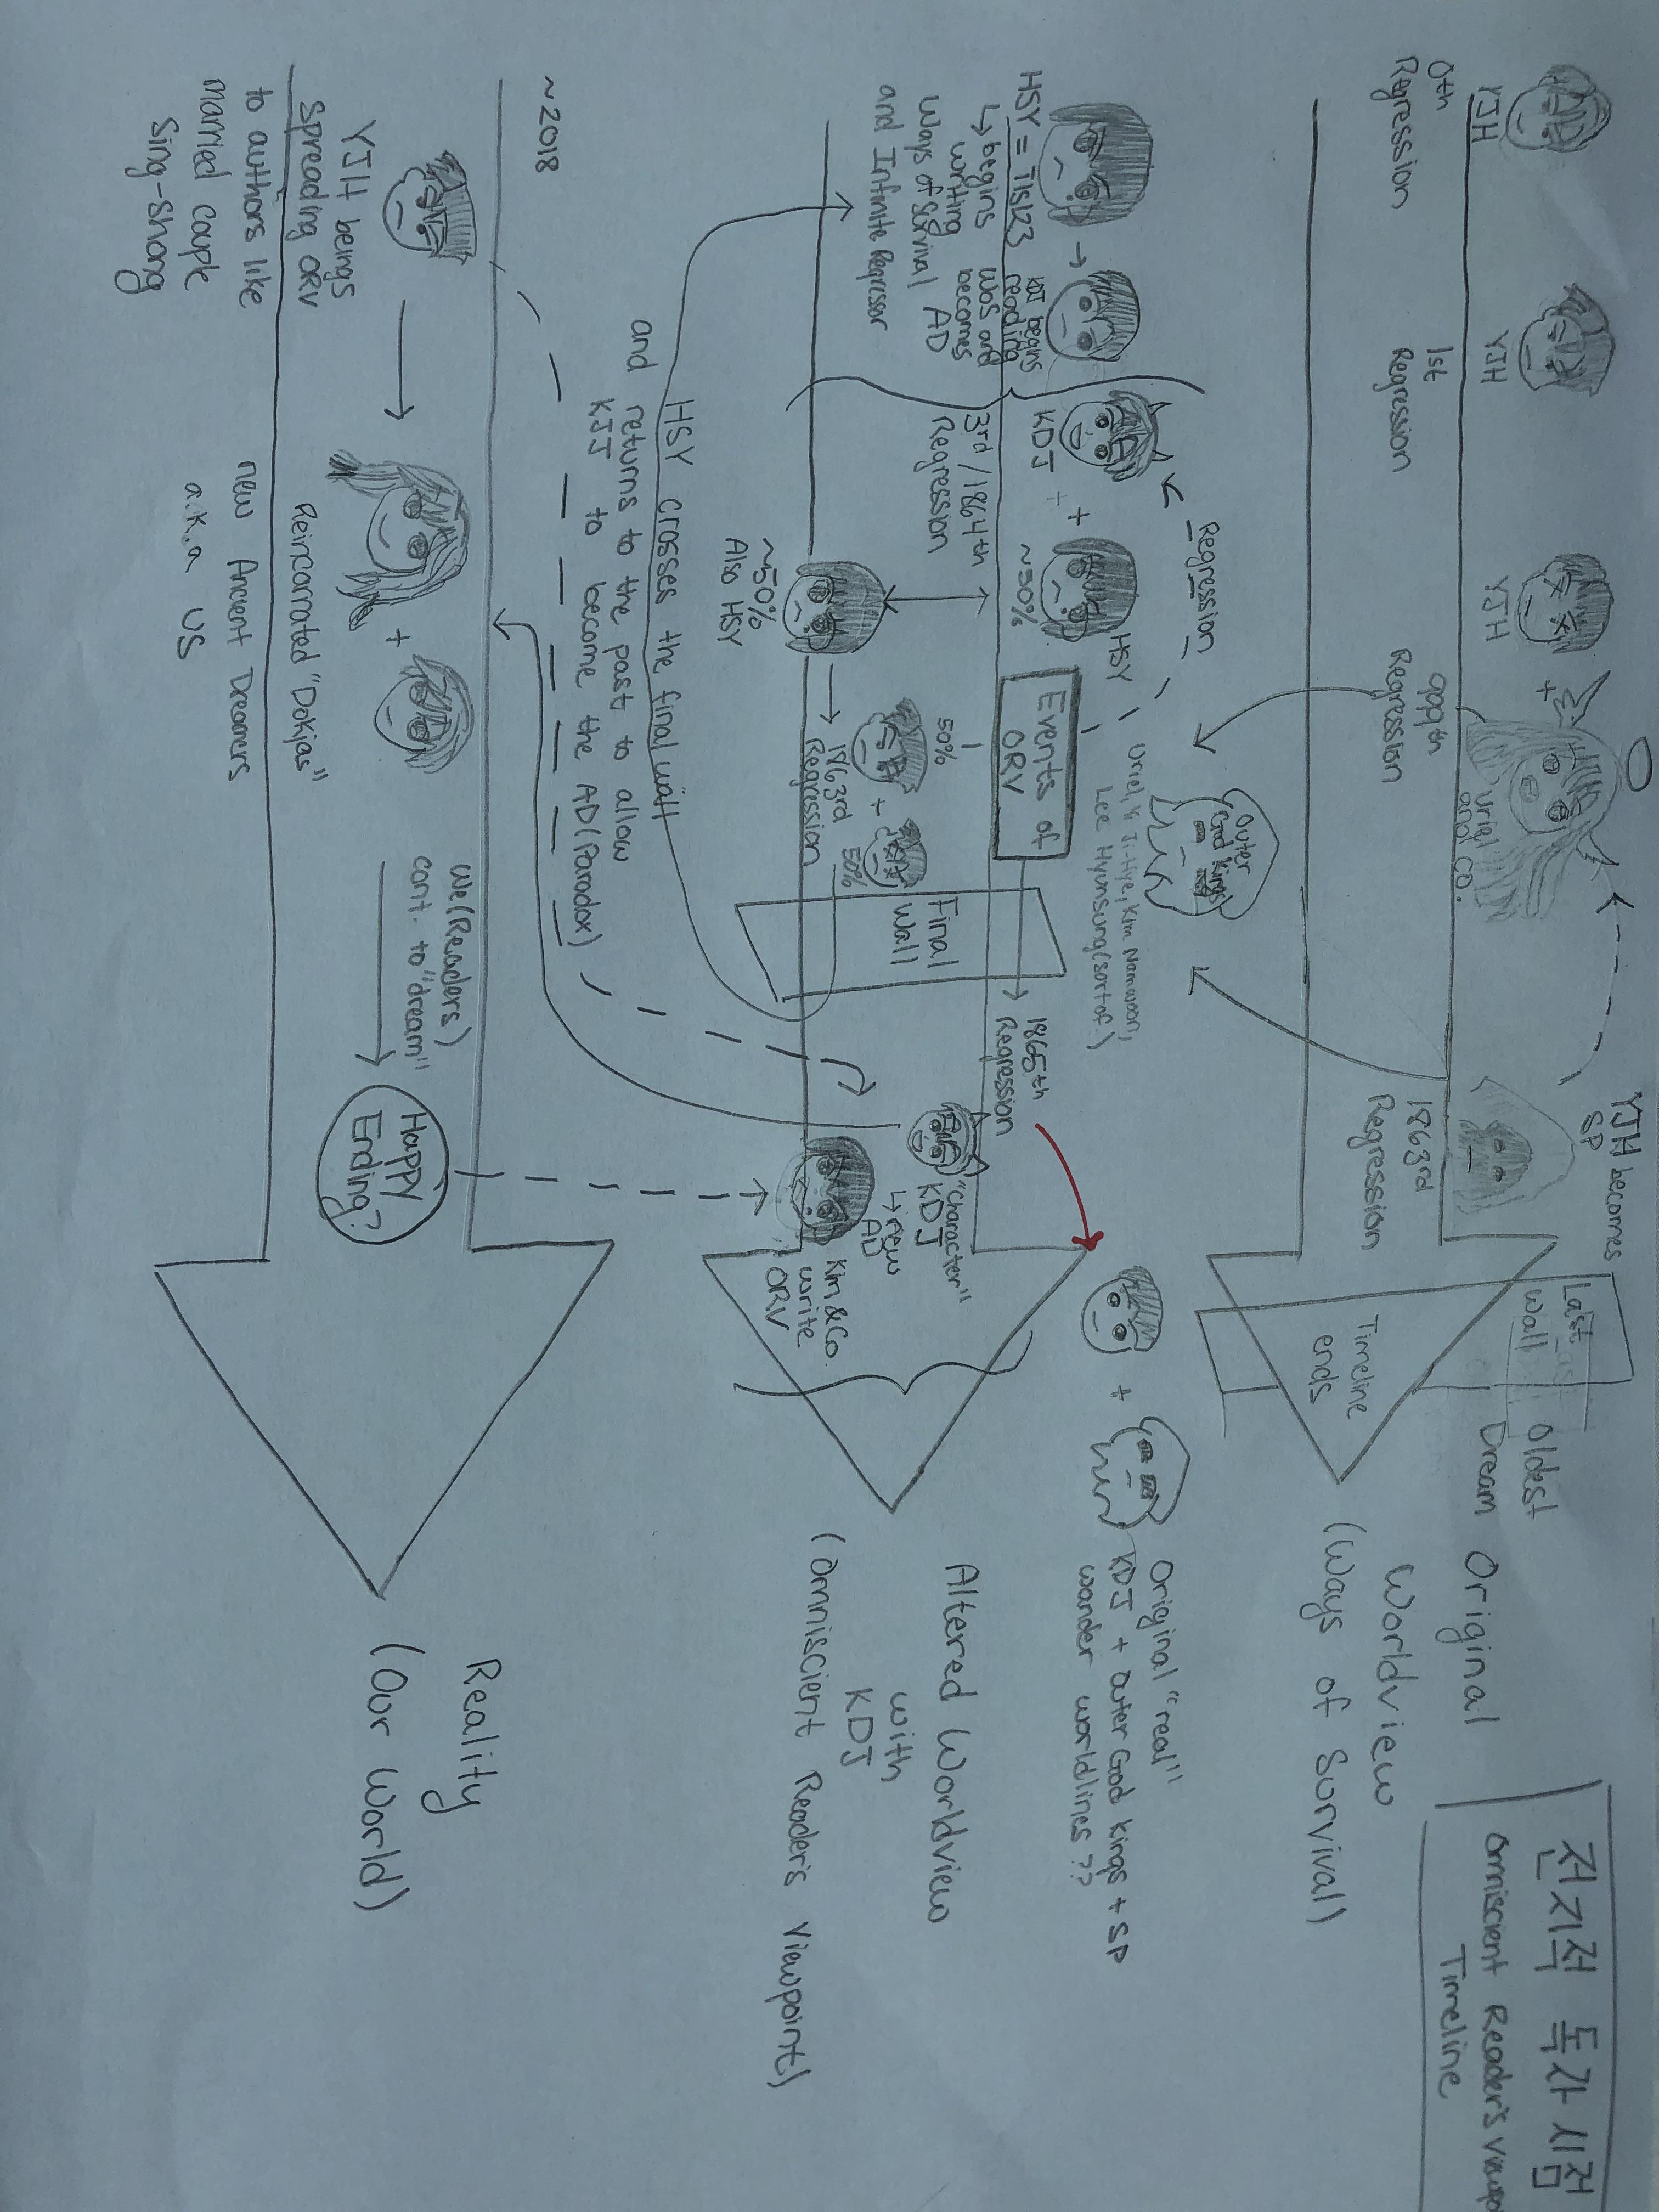 전지적 독자 시점
Omniscient Reader's
Timeline
YJH
YJH
YJH
+
Uriel
and co.
YJH becomes
SP
0th
Regression
1st
Regression
999th
Regression
1863rd
Regression
Last
Wall
Oldest
Dream
Timeline
ends
Original
Worldview
(Ways of Survival)
Regression
Outer
God Kings
Uriel, Yi Ji-Hye, Kim Namwoon,
Lee Hyunsung (sort of.)
HSY = Tls123
↳ begins
writing
Ways of Survival
and Infinite Regressor
KDJ begins
reading
WoS and
becomes
AD
KDJ
+
HSY
~50%
3rd/1864th
Regression
Events of
ORV
50%
+
50%
1863rd
Regression
~50%
Also HSY
Final
Wall
1865th
Regression
+
Original "real"
KDJ + Outer God Kings + SP
wander worldlines??
"Character"
KDJ
↳ new
AD
Kim & Co.
write
ORV
Altered Worldview
with
KDJ
(Omniscient Reader's Viewpoint)
HSY crosses the final wall
and returns to the past to allow
KJJ to become the AD (Paradox)
~2018
YJH beings
spreading ORV
to authors like
married couple
Sing-Shong
+
Reincarnated "Dokjas"
new Ancient Dreamers
a.k.a US
We (Readers)
cont. to "dream"
Happy
Ending?
Reality
(Our World)